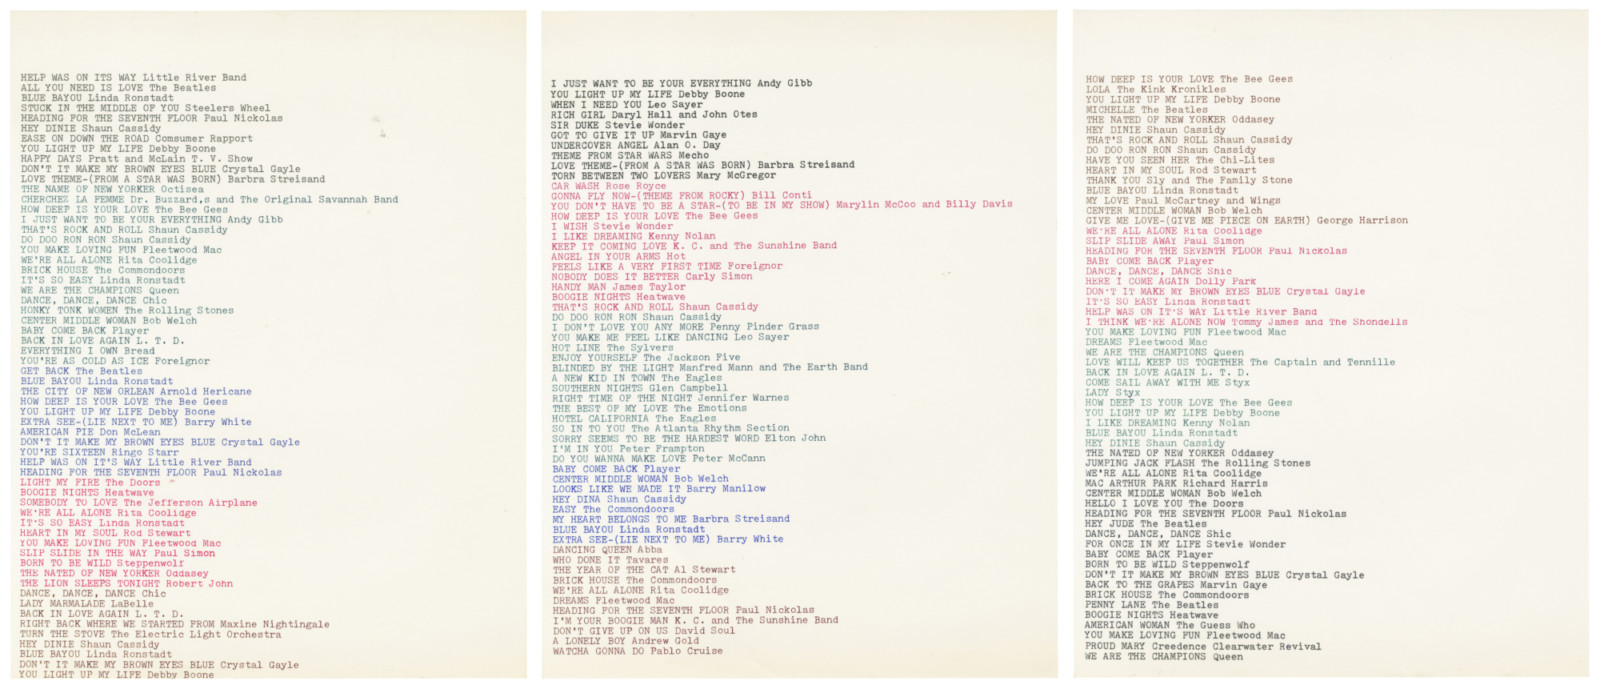 HELP WAS ON ITS WAY Little River Band
ALL YOU NEED IS LOVE The Beatles
BLUE BAYOU Linda Ronstadt
STUCK IN THE MIDDLE OF YOU Steelers Wheel
HEADING FOR THE SEVENTH FLOOR Paul Nickolas
HEY DINIE Shaun Cassidy
EASE ON DOWN THE ROAD Comsumer Rapport
YOU LIGHT UP MY LIFE Debby Boone
HAPPY DAYS Pratt and McLain T. V. Show
DON'T IT MAKE MY BROWN EYES BLUE Crystal Gayle
LOVE THEME-(FROM A STAR WAS BORN) Barbra Streisand
THE NAME OF NEW YORKER Octisea
CHERCHEZ LA FEMME Dr. Buzzard,s and The Original Savannah Band
HOW DEEP IS YOUR LOVE The Bee Gees
I JUST WANT TO BE YOUR EVERYTHING Andy Gibb
THAT'S ROCK AND ROLL Shaun Cassidy
DO DOO RON RON Shaun Cassidy
YOU MAKE LOVING FUN Fleetwood Mac
WE'RE ALL ALONE Rita Coolidge
BRICK HOUSE The Commondoors
IT'S SO EASY Linda Ronstadt
WE ARE THE CHAMPIONS Queen
DANCE, DANCE, DANCE Chic
HONKY TONK WOMEN The Rolling Stones
CENTER MIDDLE WOMAN Bob Welch
BABY COME BACK Player
BACK IN LOVE AGAIN L. T. D.
EVERYTHING I OWN Bread
YOU'RE AS COLD AS ICE Foreignor
GET BACK The Beatles
BLUE BAYOU Linda Ronstadt
THE CITY OF NEW ORLEAN Arnold Hericane
HOW DEEP IS YOUR LOVE The Bee Gees
YOU LIGHT UP MY LIFE Debby Boone
EXTRA SEE-(LIE NEXT TO ME) Barry White
AMERICAN PIE Don McLean
DON'T IT MAKE MY BROWN EYES BLUE Crystal Gayle
YOU'RE SIXTEEN Ringo Starr
HELP WAS ON IT'S WAY Little River Band
HEADING FOR THE SEVENTH FLOOR Paul Nickolas
LIGHT MY FIRE The Doors
BOOGIE NIGHTS Heatwave
SOMEBODY TO LOVE The Jefferson Airplane
WE'RE ALL ALONE Rita Coolidge
IT'S SO EASY Linda Ronstadt
HEART IN MY SOUL Rod Stewart
YOU MAKE LOVING FUN Fleetwood Mac
SLIP SLIDE IN THE WAY Paul Simon
BORN TO BE WILD Steppenwolf
THE NATED OF NEW YORKER Oddasey
THE LION SLEEPS TONIGHT Robert John
DANCE, DANCE, DANCE Chic
LADY MARMALADE LaBelle
BACK IN LOVE AGAIN L. T. D.
RIGHT BACK WHERE WE STARTED FROM Maxine Nightingale
TURN THE STOVE The Electric Light Orchestra
HEY DINIE Shaun Cassidy
BLUE BAYOU Linda Ronstadt
DON'T IT MAKE MY BROWN EYES BLUE Crystal Gayle
YOU LIGHT UP MY LIFE Debby Boone
I JUST WANT TO BE YOUR EVERYTHING Andy Gibb
YOU LIGHT UP MY LIFE Debby Boone
WHEN I NEED YOU Leo Sayer
RICH GIRL Daryl Hall and John Otes
SIR DUKE Stevie Wonder
GOT TO GIVE IT UP Marvin Gaye
UNDERCOVER ANGEL Alan O. Day
THEME FROM STAR WARS Mecho
LOVE THEME-(FROM A STAR WAS BORN) Barbra Streisand
TORN BETWEEN TWO LOVERS Mary McGregor
CAR WASH Rose Royce
GONNA FLY NOW-(THEME FROM ROCKY) Bill Conti
YOU DON'T HAVE TO BE A STAR-(TO BE IN MY SHOW) Marylin McCoo and Billy Davis
HOW DEEP IS YOUR LOVE The Bee Gees
I WISH Stevie Wonder
I LIKE DREAMING Kenny Nolan
KEEP IT COMING LOVE K. C. and The Sunshine Band
ANGEL IN YOUR ARMS Hot
FEELS LIKE A VERY FIRST TIME Foreignor
NOBODY DOES IT BETTER Carly Simon
HANDY MAN James Taylor
BOOGIE NIGHTS Heatwave
THAT'S ROCK AND ROLL Shaun Cassidy
DO DOO RON RON Shaun Cassidy
I DON'T LOVE YOU ANY MORE Penny Pinder Grass
YOU MAKE ME FEEL LIKE DANCING Leo Sayer
HOT LINE The Sylvers
ENJOY YOURSELF The Jackson Five
BLINDED BY THE LIGHT Manfred Mann and The Earth Band
A NEW KID IN TOWN The Eagles
SOUTHERN NIGHTS Glen Campbell
RIGHT TIME OF THE NIGHT Jennifer Warnes
THE BEST OF MY LOVE The Emotions
HOTEL CALIFORNIA The Eagles
SO IN TO YOU The Atlanta Rhythm Section
SORRY SEEMS TO BE THE HARDEST WORD Elton John
I'M IN YOU Peter Frampton
DO YOU WANNA MAKE LOVE Peter McCann
BABY COME BACK Player
CENTER MIDDLE WOMAN Bob Welch
LOOKS LIKE WE MADE IT Barry Manilow
HEY DINA Shaun Cassidy
EASY The Commondoors
MY HEART BELONGS TO ME Barbra Streisand
BLUE BAYOU Linda Ronstadt
EXTRA SEE-(LIE NEXT TO ME) Barry White
DANCING QUEEN Abba
WHO DONE IT Tavares
THE YEAR OF THE CAT Al Stewart
BRICK HOUSE The Commondoors
WE'RE ALL ALONE Rita Coolidge
DREAMS Fleetwood Mac
HEADING FOR THE SEVENTH FLOOR Paul Nickolas
I'M YOUR BOOGIE MAN K. C. and The Sunshine Band
DON'T GIVE UP ON US David Soul
A LONELY BOY Andrew Gold
WATCHA GONNA DO Pablo Cruise
HOW DEEP IS YOUR LOVE The Bee Gees
LOLA The Kink Kronikles
YOU LIGHT UP MY LIFE Debby Boone
MICHELLE The Beatles
THE NATED OF NEW YORKER Oddasey
HEY DINIE Shaun Cassidy
THAT'S ROCK AND ROLL Shaun Cassidy
DO DOO RON RON Shaun Cassidy
HAVE YOU SEEN HER The Chi-Lites
HEART IN MY SOUL Rod Stewart
THANK YOU Sly and The Family Stone
BLUE BAYOU Linda Ronstadt
MY LOVE Paul McCartney and Wings
CENTER MIDDLE WOMAN Bob Welch
GIVE ME LOVE-(GIVE ME PIECE ON EARTH) George Harrison
WE'RE ALL ALONE Rita Coolidge
SLIP SLIDE AWAY Paul Simon
HEADING FOR THE SEVENTH FLOOR Paul Nickolas
BABY COME BACK Player
DANCE, DANCE, DANCE Shic
HERE I COME AGAIN Dolly Park
DON'T IT MAKE MY BROWN EYES BLUE Crystal Gayle
IT'S SO EASY Linda Ronstadt
HELP WAS ON IT'S WAY Little River Band
I THINK WE'RE ALONE NOW Tommy James and The Shondells
YOU MAKE LOVING FUN Fleetwood Mac
DREAMS Fleetwood Mac
WE ARE THE CHAMPIONS Queen
LOVE WILL KEEP US TOGETHER The Captain and Tennille
BACK IN LOVE AGAIN L. T. D.
COME SAIL AWAY WITH ME Styx
LADY Styx
HOW DEEP IS YOUR LOVE The Bee Gees
YOU LIGHT UP MY LIFE Debby Boone
I LIKE DREAMING Kenny Nolan
BLUE BAYOU Linda Ronstadt
HEY DINIE Shaun Cassidy
THE NATED OF NEW YORKER Oddasey
JUMPING JACK FLASH The Rolling Stones
WE'RE ALL ALONE Rita Coolidge
MAC ARTHUR PARK Richard Harris
CENTER MIDDLE WOMAN Bob Welch
HELLO I LOVE YOU The Doors
HEADING FOR THE SEVENTH FLOOR Paul Nickolas
HEY JUDE The Beatles
DANCE, DANCE, DANCE Shic
FOR ONCE IN MY LIFE Stevie Wonder
BABY COME BACK Player
BORN TO BE WILD Steppenwolf
DON'T IT MAKE MY BROWN EYES BLUE Crystal Gayle
BACK TO THE GRAPES Marvin Gaye
BRICK HOUSE The Commondoors
PENNY LANE The Beatles
BOOGIE NIGHTS Heatwave
AMERICAN WOMAN The Guess Who
YOU MAKE LOVING FUN Fleetwood Mac
PROUD MARY Creedence Clearwater Revival
WE ARE THE CHAMPIONS Queen